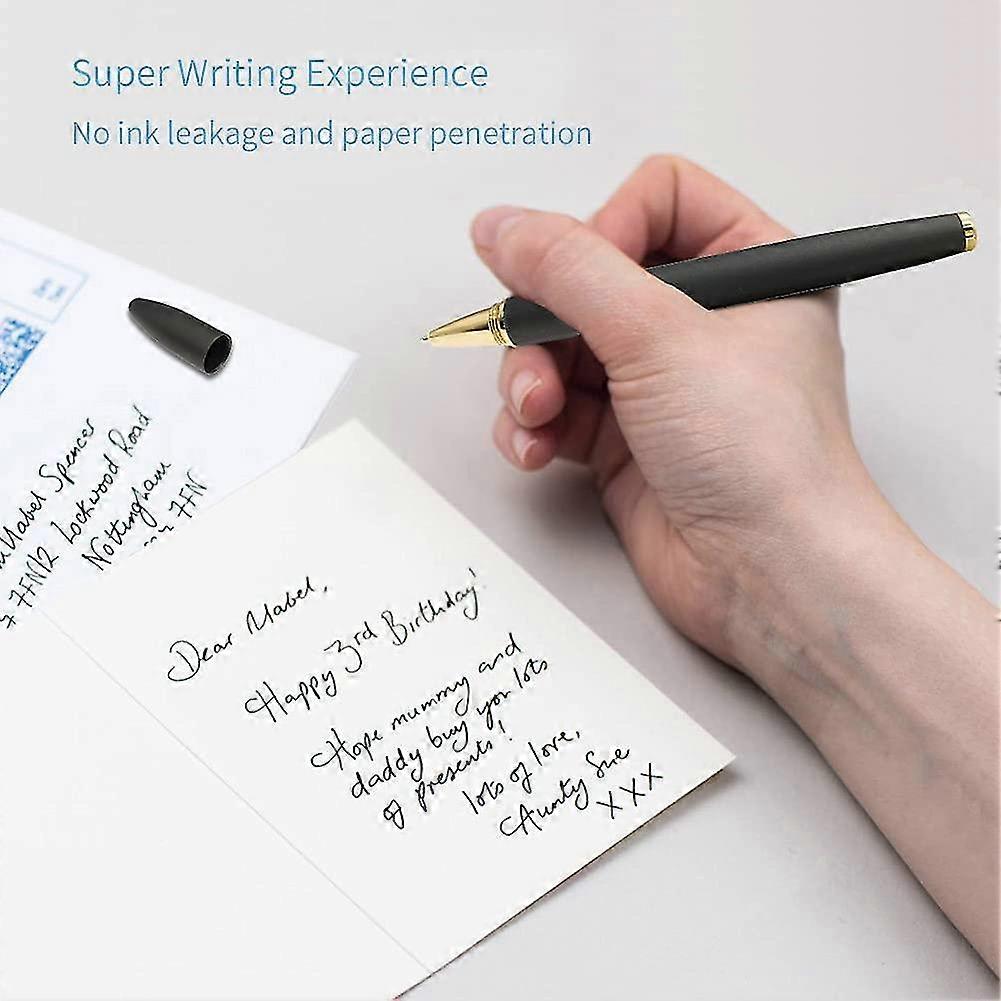 Super Writing Experience
No ink leakage and paper penetration
Mabel Spencer
12 Lockwood Road
Nottingham
7FN
Dear Mabel,
Happy 3rd Birthday!
Hope mummy and
daddy buy you lots
of presents!
lots of love,
Aunty Sue
XXX